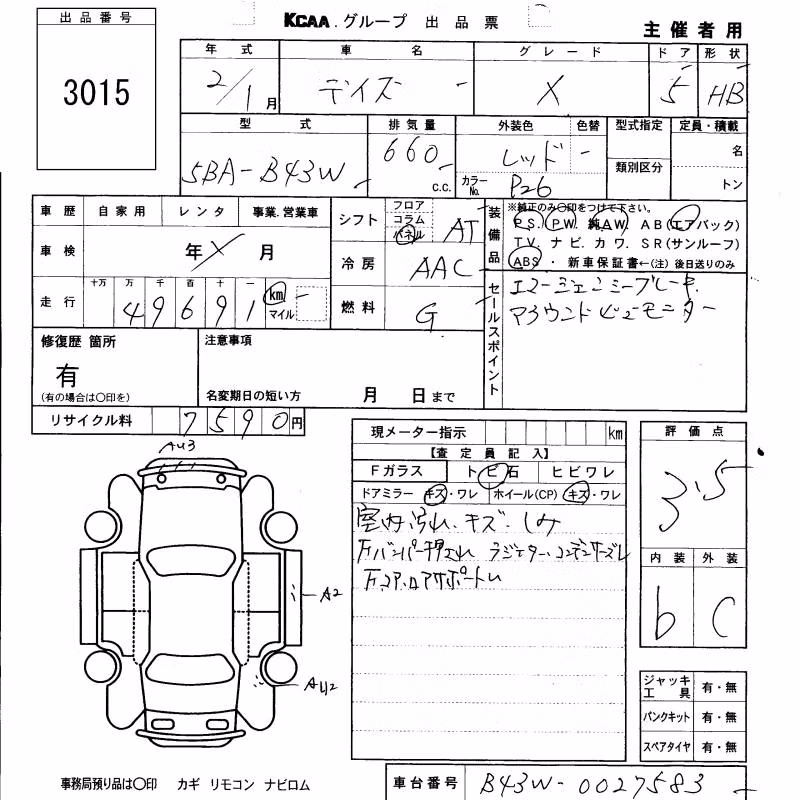 出品番号
3015
KCAA.グループ 出品票
主催者用
年式 車名 グレード ドア 形状
2/1月 デイズ - X 5 HB
型式 排気量 外装色 色替 型式指定 定員・積載
5BA-B43W 660 c.c. レッド - 名
カラーNo. P26 類別区分 トン
車歴 自家用 レンタ 事業.営業車
車検 年 X 月
走行 十万 万 千 百 十 一
49691 km - マイル
シフト フロア コラム パネル AT
冷房 AAC
燃料 G
装備品
※純正のみ〇印をつけて下さい。
PS. PW. 純AW. AB(エアバック)
TV. ナビ. カワ. SR(サンルーフ)
ABS ・ 新車保証書←(注)後日送りのみ
セールスポイント
エマージェンシーブレーキ
アラウンドビューモニター
修復歴 箇所
有
(有の場合は〇印を)
注意事項
名変期日の短い方 月 日まで
リサイクル料 7590円
現メーター指示 km
【査定員記入】
Fガラス ト ビ 石 ヒビワレ
ドアミラー キズ・ワレ ホイール(CP) キズ・ワレ
室内汚れ、キズ・しみ
Fバンパー押され ラジエター、コンデンサーズレ
評価点
3.5
内装 外装
b C
AU3
A2
AU2
ジャッキ工具 有・無
パンクキット 有・無
スペアタイヤ 有・無
事務局預り品は〇印 カギ リモコン ナビロム
車台番号 B43W-0027583